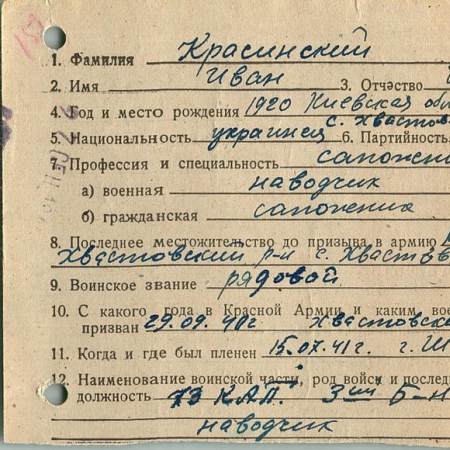 1. Фамилия Красинский
2. Имя Иван 3. Отчество
4. Год и место рождения 1920 Киевская обл
с. Хвастов
5. Национальность украинец 6. Партийность
7. Профессия и специальность сапожни
а) военная наводчик
б) гражданская сапожник
8. Последнее местожительство до призыва в армию
Хвастовский р-н с. Хвастов
9. Воинское звание рядовой
10. С какого года в Красной Армии и каким вое
призван 29.09.40г Хвастовск
11. Когда и где был пленен 15.07.41г. г.
12. Наименование воинской части, род войск и послед
должность 73 КАП. 3ий Б-н
наводчик